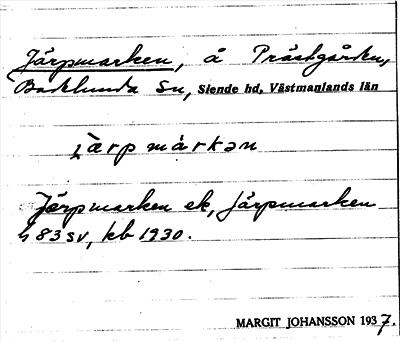 Järpmarken, å Prästgården,
Badelunda Sn, Siende hd, Västmanlands län
järpmarkən
Järpmarken ek, Järpmarken
h 83 sv, kb 1930.
MARGIT JOHANSSON 1937.